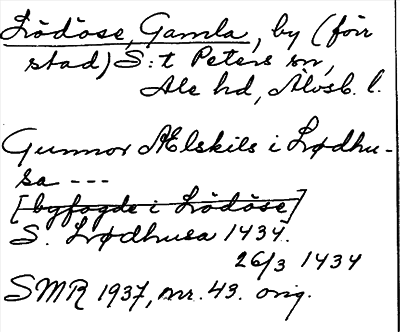 Lödöse, Gamla, by (förr
stad) S:t Peters sn,
Ale hd, Älvsb. l.
Gunnor Ælskils i Lrødhu-
sa ---
[byfogde i Lödöse]
S. Lrødhusa 1434.
26/3 1434
SMR 1937, nr. 43. orig.